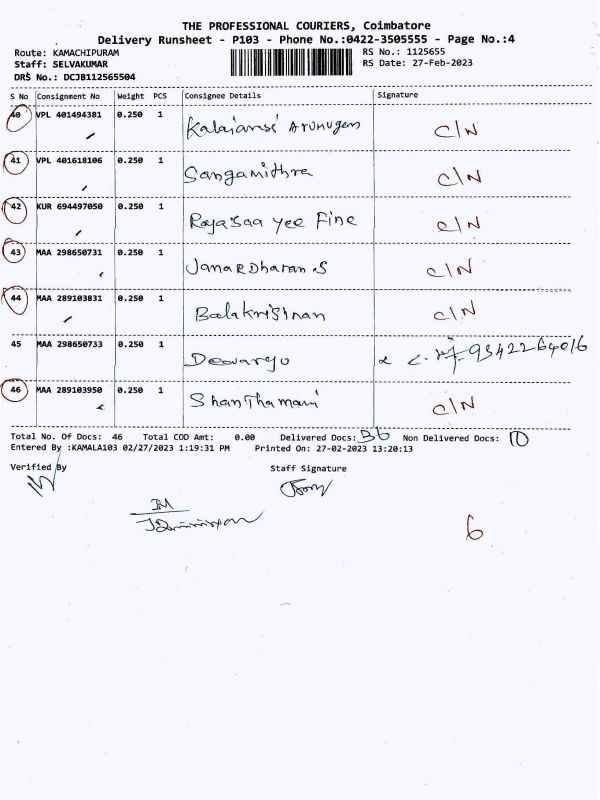 THE PROFESSIONAL COURIERS, Coimbatore
Delivery Runsheet - P103 - Phone No.:0422-3505555 - Page No.:4
Route: KAMACHIPURAM
RS No.: 1125655
Staff: SELVAKUMAR
RS Date: 27-Feb-2023
DRS No.: DCJB112565504
S No Consignment No Weight PCS Consignee Details Signature
40 VPL 401494381 0.250 1 Kalaiarasi Arunugem C/N
41 VPL 401618106 0.250 1 Sangamithra C/N
42 KUR 694497050 0.250 1 Rajasaa yee Fine C/N
43 MAA 298650731 0.250 1 JanaRDharan S C/N
44 MAA 289103831 0.250 1 Balakrishnan C/N
45 MAA 298650733 0.250 1 Devaraju 9342264016
46 MAA 289103950 0.250 1 ShanThamani C/N
Total No. Of Docs: 46 Total COD Amt: 0.00 Delivered Docs: 36 Non Delivered Docs: 10
Entered By :KAMALA103 02/27/2023 1:19:31 PM Printed On: 27-02-2023 13:20:13
Verified By Staff Signature
6